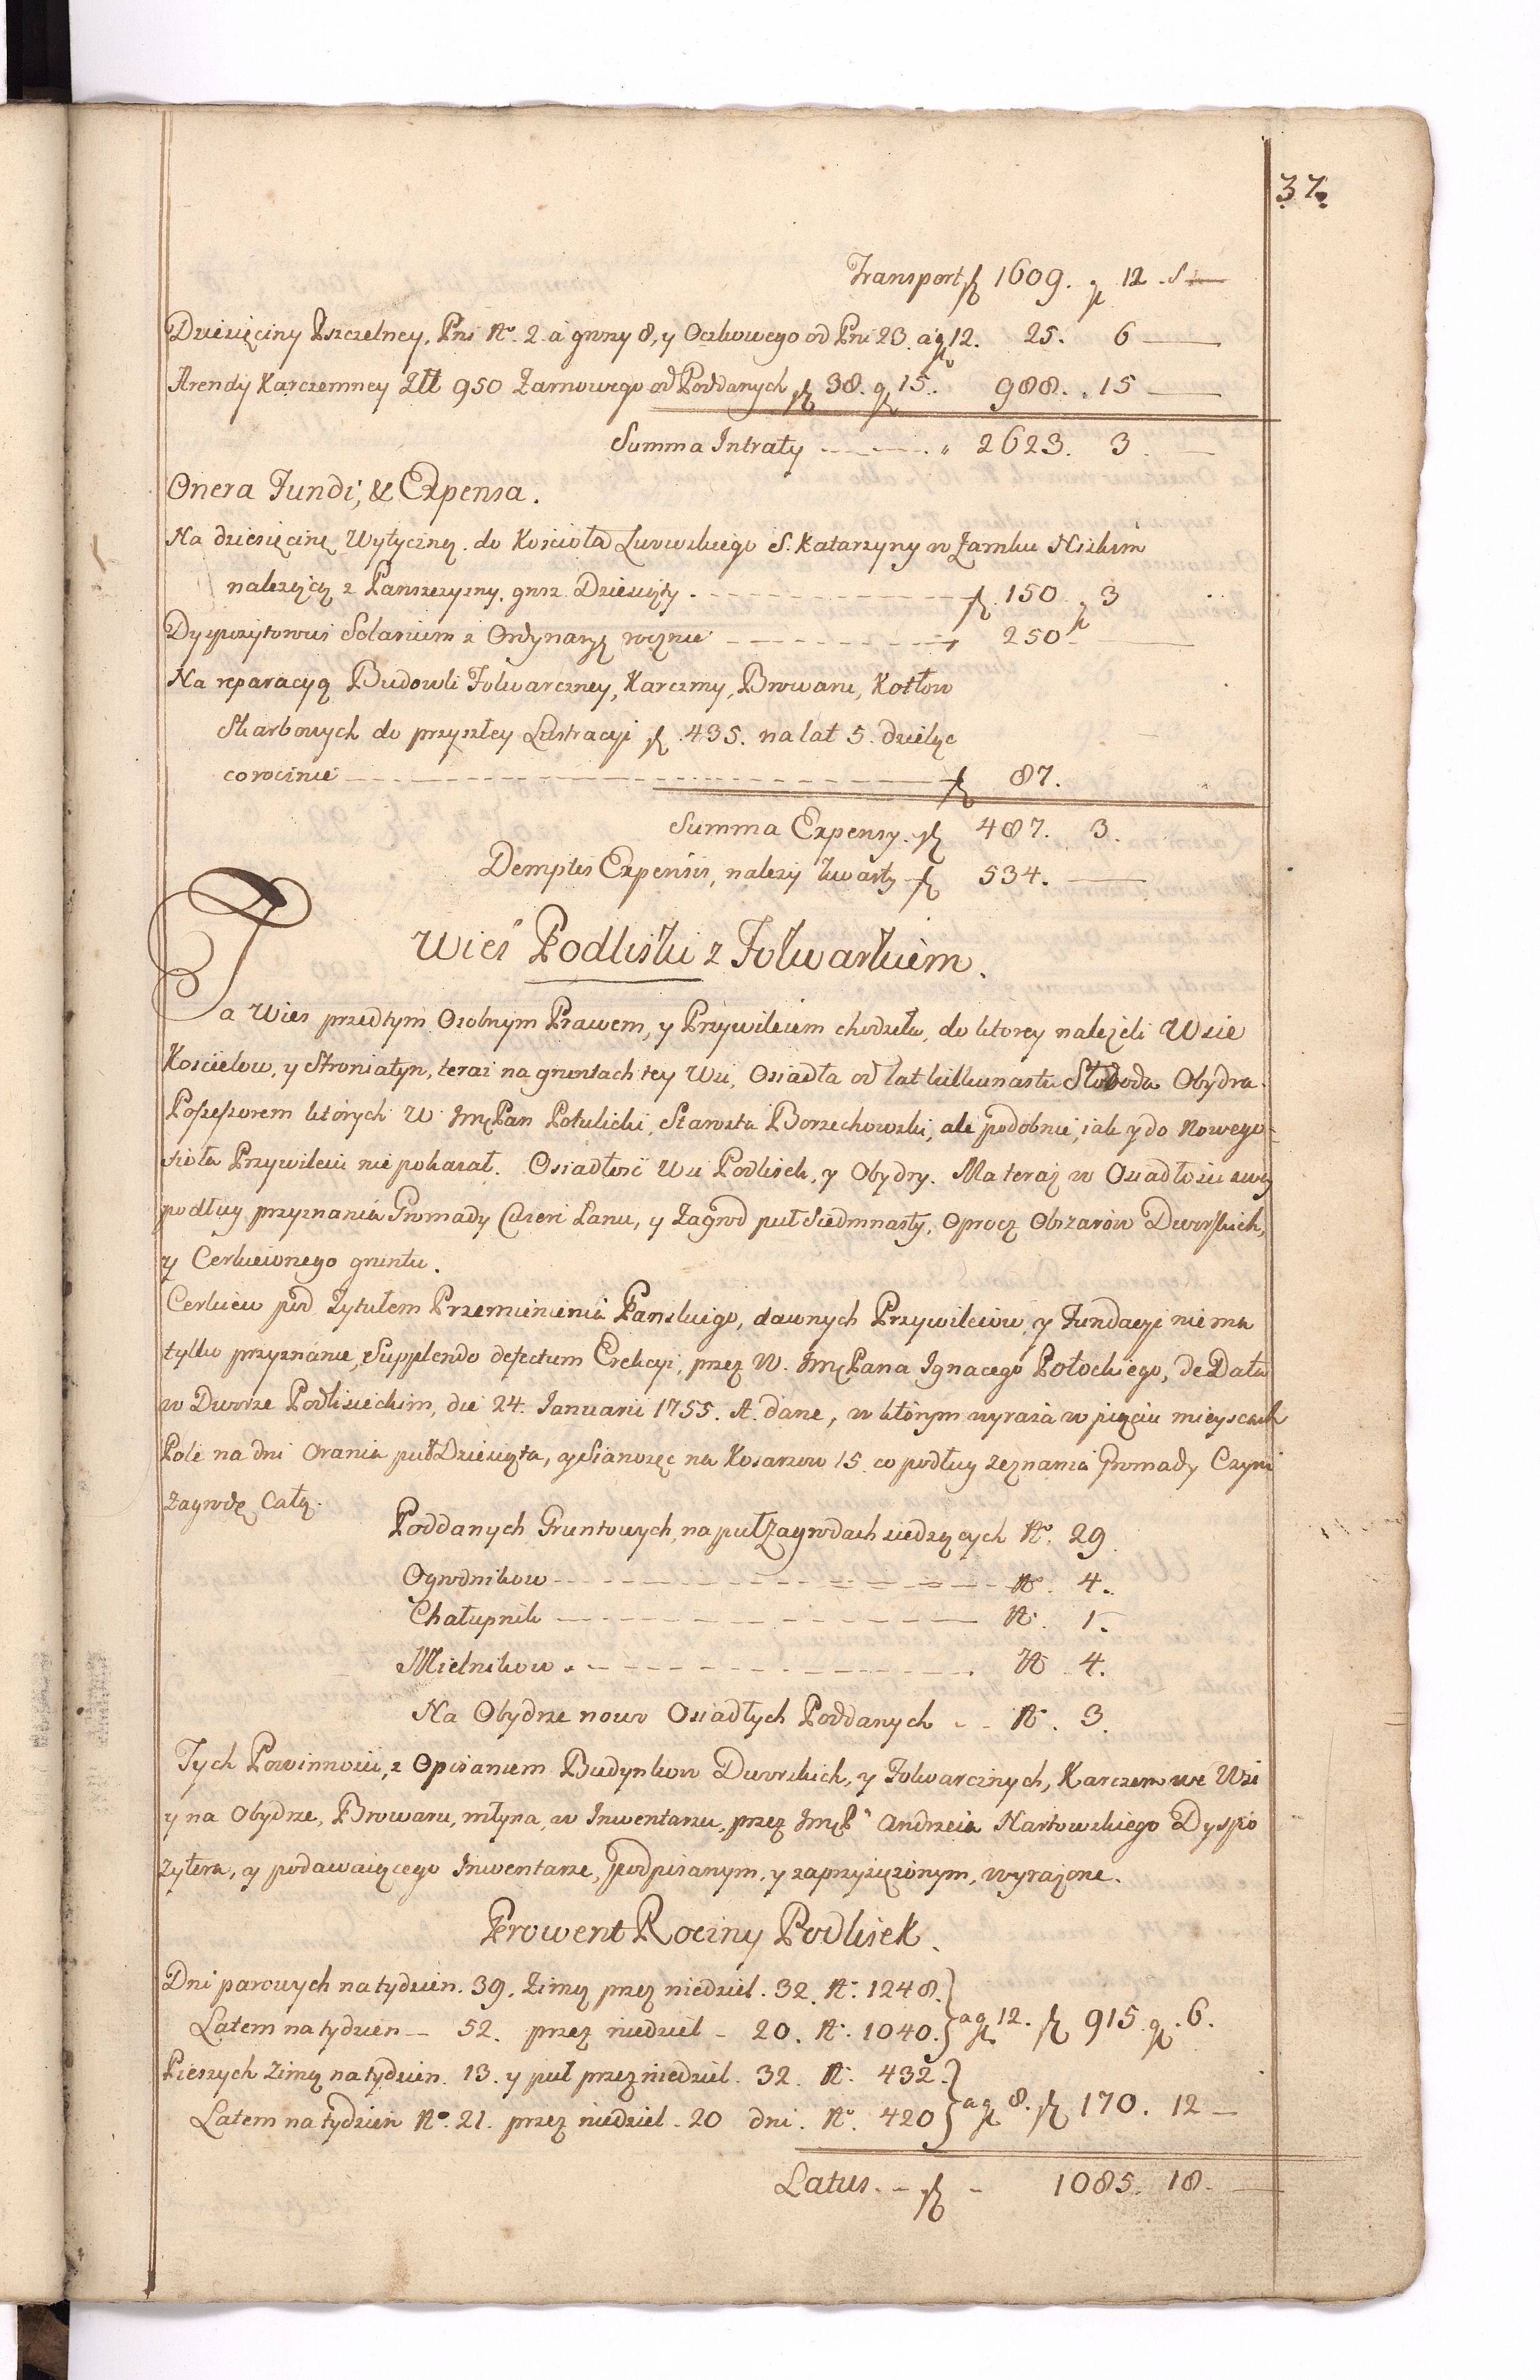 37.
Transport fl 1609. gr 12. s —
Dziesięciny Pszczelney, Pni No. 2. á gnrzy 8, y Oczkowego od Pni 23. á gr 12. 25. 6 —
Arendy Karczemney Złł 950 Zarnowego od Poddanych fl 38. gr 15. 988. 15 —
Summa Intraty - - - 2623. 3. —
Onera Fundi, & Expensa.
Na dziesięcinę Wytyczną do Kościoła Lwowskiego S. Katarzyny w Zamku Niskim
należącą z Panszczyzny, gnsz. Dziesiąty . - - - fl 150 gr 3
Dyspozytorowi Solarium z Ordynaryą rocznie - - - 250. —
Na reparacyą Budowli Folwarczney, Karczmy, Browaru, Kotłow
Skarbowych do przyszłey Lustracyi fl 435. na lat 5. dzieląc
corocznie - - - fl 87.
Summa Expensy. fl 487. 3.
Demptis Expensis, należy kwarty fl 534. —
Wieś Podliski z Folwarkiem.
Ta Wies przedtym Osobnym Prawem, y Przywileiem chodziła, do ktorey należeli Wsie
Kościelow, y Stroniatyn, teraz na gruntach tey Wsi, Osiadła od lat kilkunastu Słoboda Obydra.
Possessorem których W JmćPan Potulicki, Starosta Borzechowski, ale podobnie, iak y do Nowego-
sioła Przywileiu nie pokazał. Osiadłość Wsi Podlisek, y Obydry. Ma teraz w Osiadłości swey
podług przyznania Gromady Czteri Lanu, y Zagrod puł Siedmnasty, Oprocz Obszarów Dworskich,
y Cerkiewnego gruntu.
Cerkiew pod Tytułem Przemienienia Panskiego, dawnych Przywileiow, y Fundacyi nie ma
tylko przyznanie, Supplendo defectum Erekcyi, przez W. JmćPana Ignacego Potockiego, de Data
w Dworze Podlisieckim, die 24. Januarii 1755. A. dane, w którym wyraża w pięciu mieyscach
Pole na dni Orania puł Dziesiąta, y Sianożęć na Kosarzow 15. co podług zeznania Gromady Czyni
Zagrodę Całą.
Poddanych Gruntowych, na puł Zagrodach siedzących No. 29
Ogrodnikow - - - No. 4.
Chałupnik - - - No. 1.
Mielnikow - - - No 4.
Na Obydrze nowo Osiadłych Poddanych - - No. 3.
Tych Powinności, z Opisaniem Budynkow Dworskich, y Folwarcznych, Karczem we Wsi
y na Obydrze, Browaru, młyna, w Inwentarzu, przez JmćPa Andrzeia Nartowskiego Dyspo
zytora, y podawaiącego Inwentarze, podpisanym, y zaprzysiężonym, wyrażone.
Prowent Roczny Podlisek.
Dni parowych na tydzien. 39. Zimą przez niedziel. 32. No. 1248.
Latem na tydzien - 52. przez niedziel - 20. No. 1040. } a gr 12. fl 915 gr. 6.
Pieszych Zimą na tydzien. 13. y puł przez niedziel. 32. No. 432.
Latem na tydzien No. 21. przez niedziel - 20 dni. No. 420 } a gr 8. fl 170. 12 —
Latus. - fl - 1085. 18. —